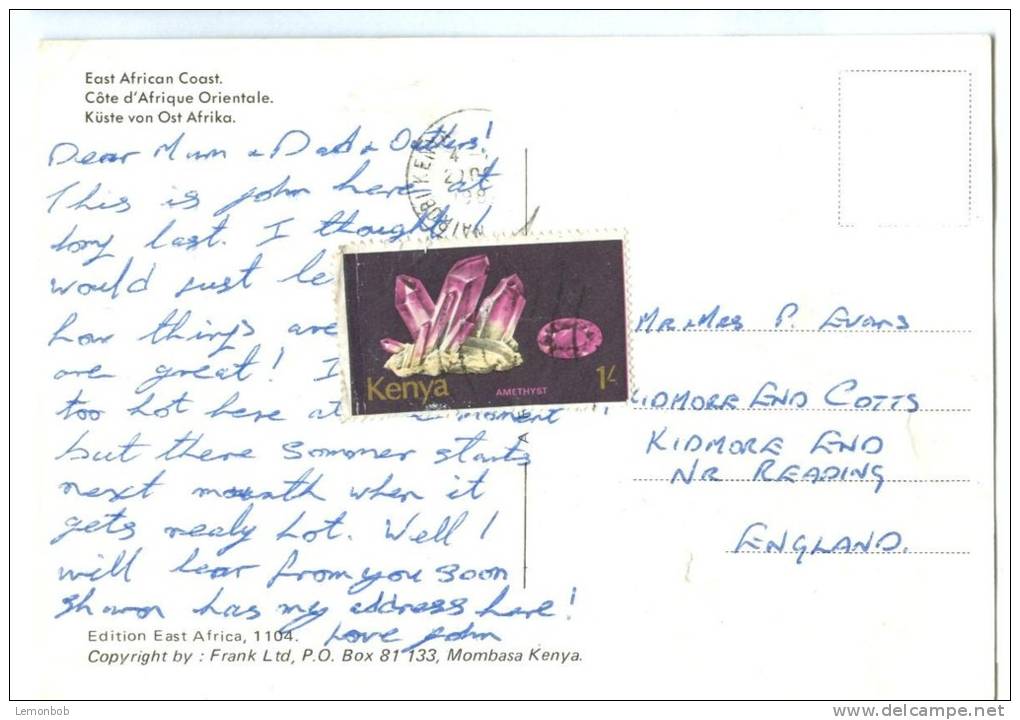 East African Coast.
Côte d'Afrique Orientale.
Küste von Ost Afrika.
Dear Mum & Dad &
This is john here at
long last. I thought I
would just le
how things are
are great! I
too hot here at moment
but there sommer starts
next month when it
gets realy hot. Well I
will hear from you soon
sharon has my address here!
Love john
Kenya
AMETHYST
1/-
Mr & Mrs P. Evans
KIDMORE END COTTS
KIDMORE END
NR READING
ENGLAND.
Edition East Africa, 1104.
Copyright by : Frank Ltd, P.O. Box 81 133, Mombasa Kenya.
Lemonbob
delcampe.net